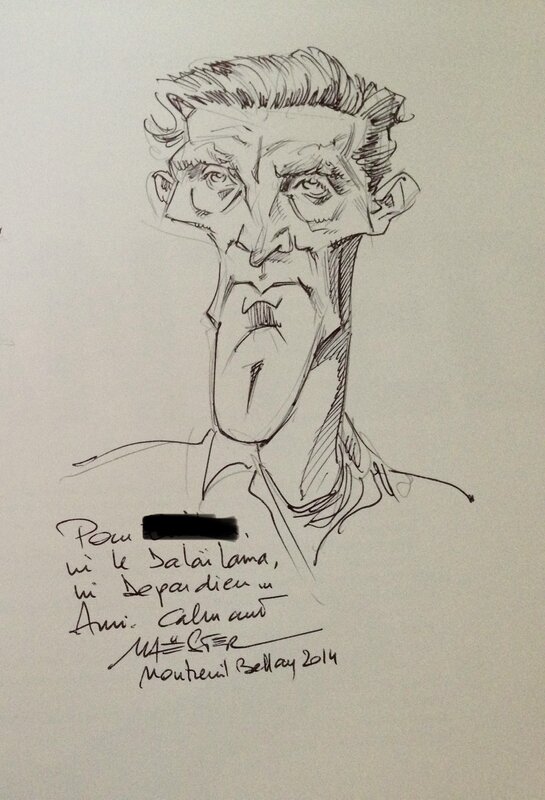 Pour
ni le Dalaïlama,
ni Depardieu...
Ami. Calmant
MAËSTER
Montreuil Bellay 2014